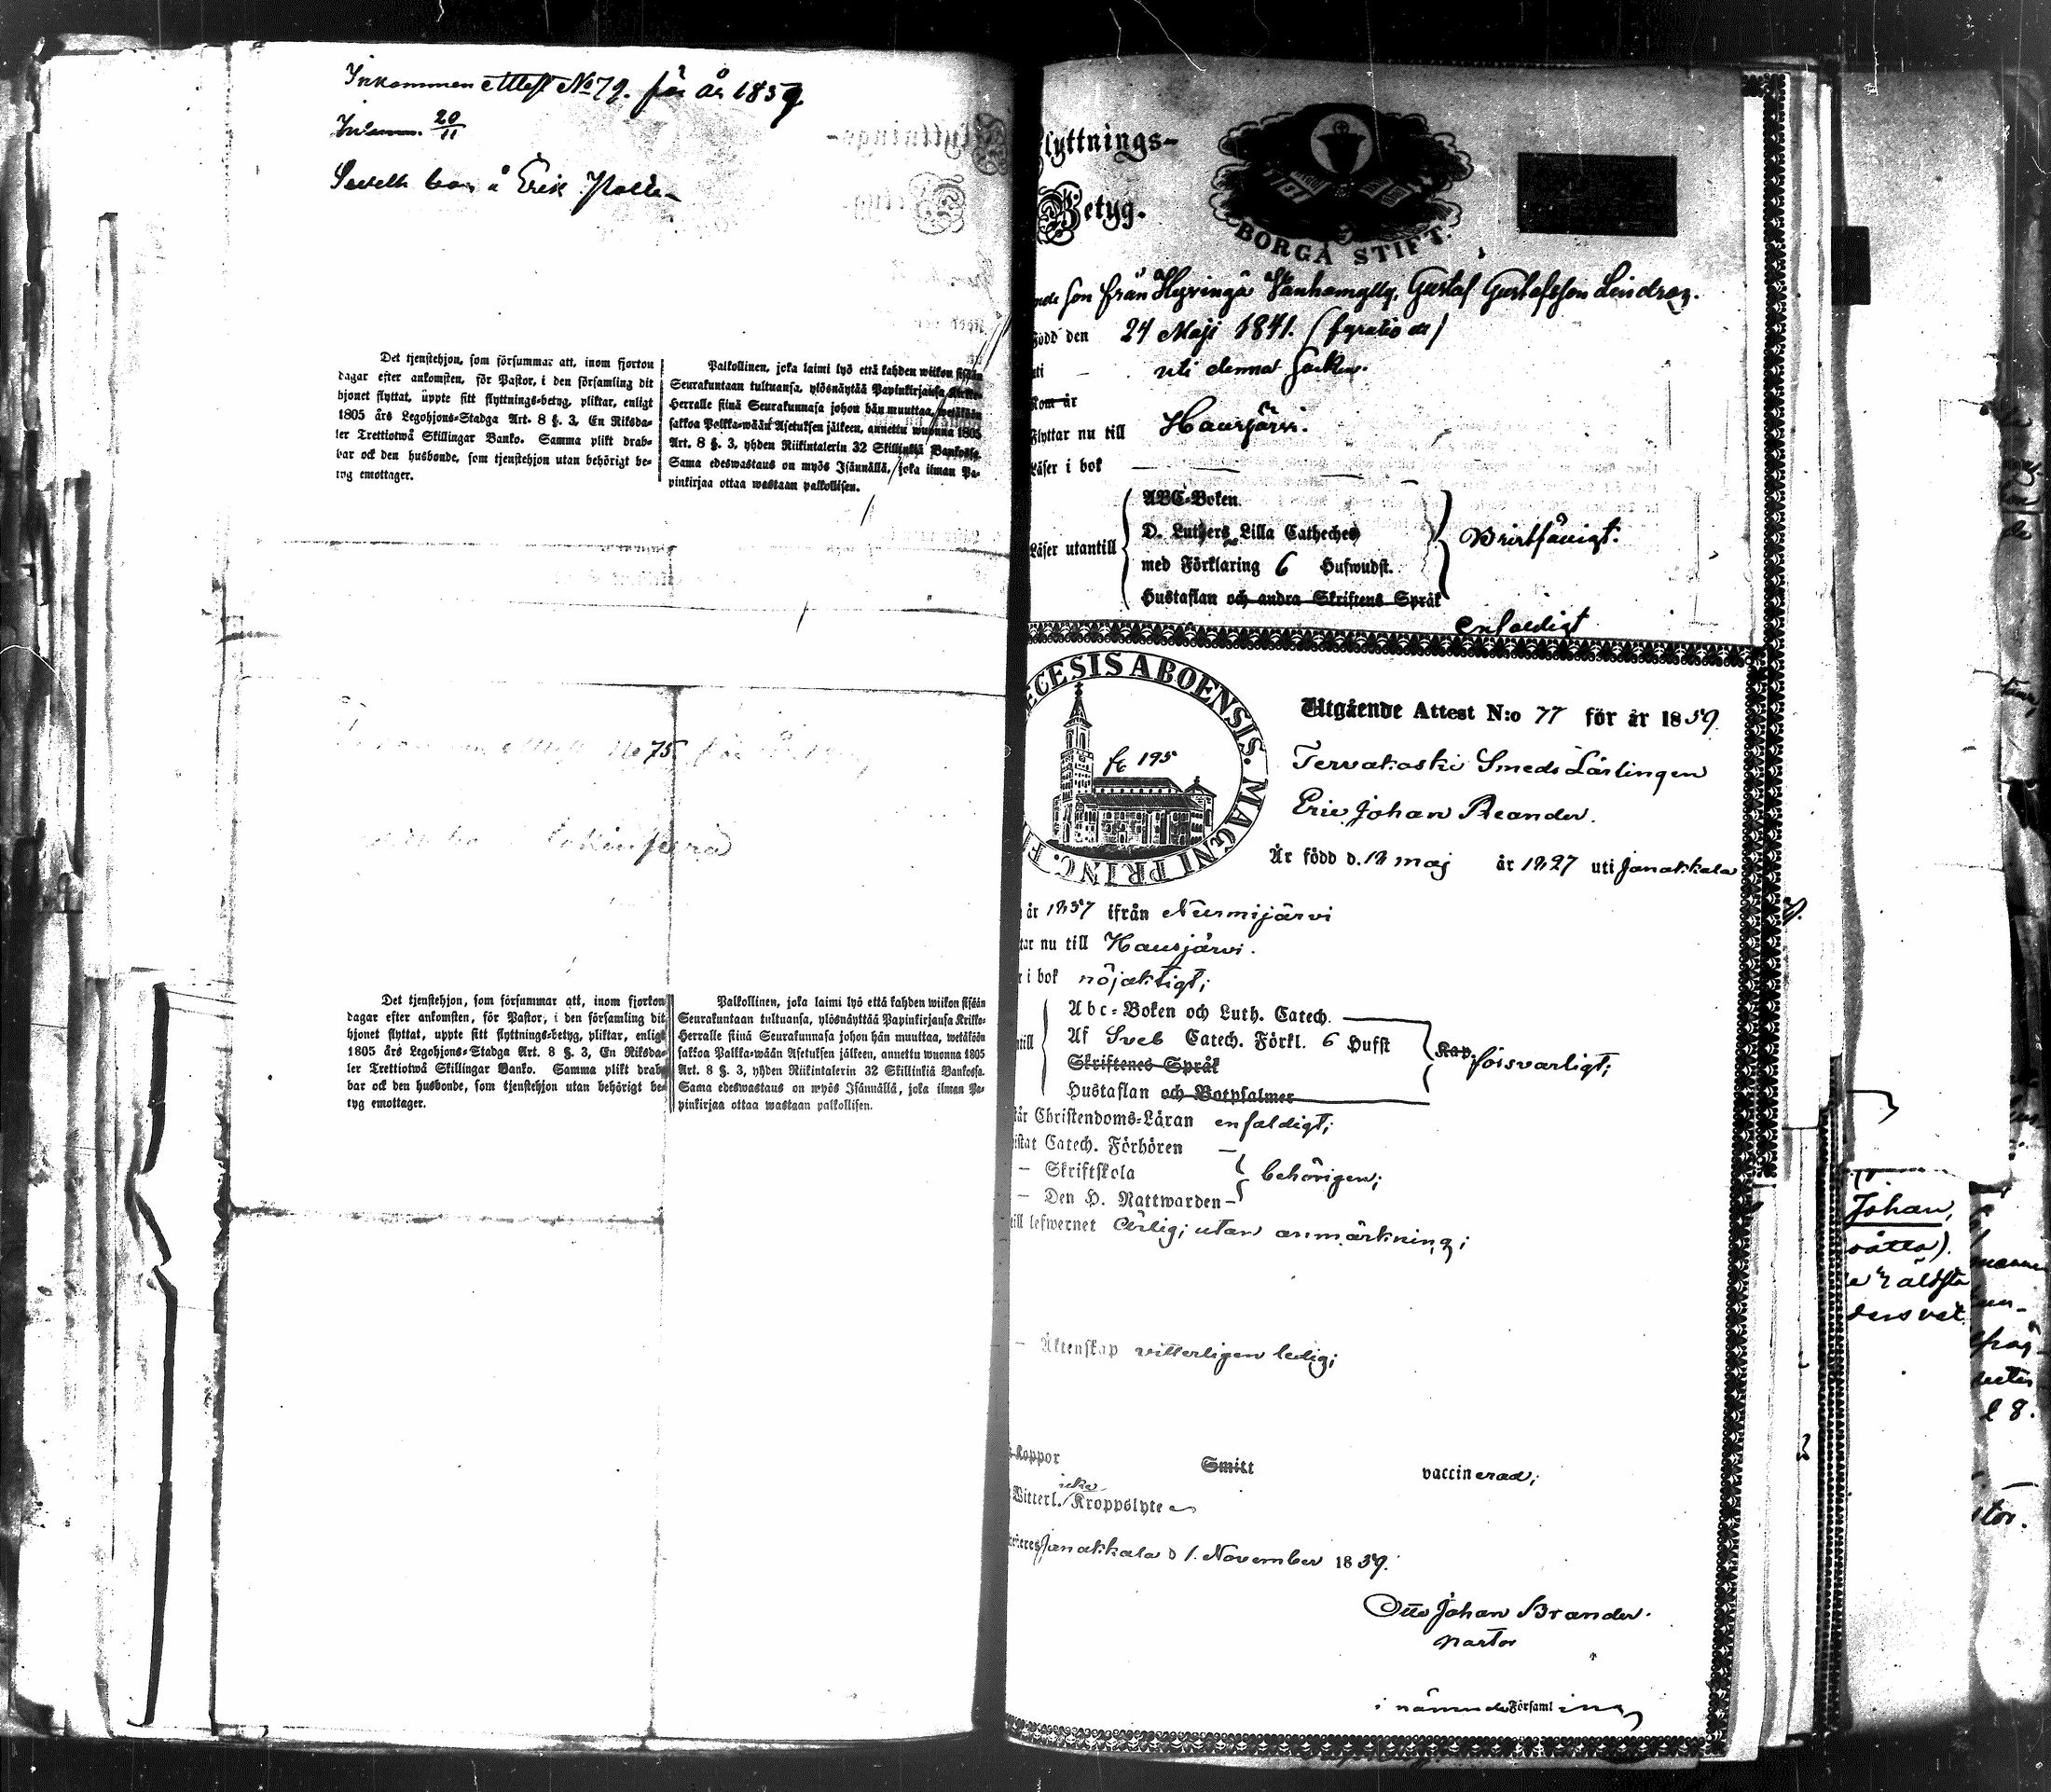 Inkommen attest No 79. för år 1859
Inlemn. 20/11
Erik
Det tjenstehjon, som försummar att, inom fjorton
dagar efter ankomsten, för Pastor, i den församling dit
hjonet flyttat, uppte sitt flyttnings-betyg, pliktar, enligt
1805 års Legohjons-Stadga Art. 8 §. 3, En Riksda-
ler Trettiotwå Skillingar Banko. Samma plikt drab-
bar ock den husbonde, som tjenstehjon utan behörigt be-
tyg emottager.
Palkollinen, joka laimi lyö että kahden wiikon sisään
Seurakuntaan tultuansa, ylösnäyttää Papinkirjansa Kirkko-
Herralle siinä Seurakunnasa johon hän muuttaa, wetäköön
sakkoa Palkka-wään Asetuksen jälkeen, annettu wuonna 1805
Art. 8 §. 3, yhden Riikintalerin 32 Skillinkiä Bankossa.
Sama edeswastaus on myös Isännällä, joka ilman Pa-
pinkirjaa ottaa wastaan palkollisen.
No 75
Det tjenstehjon, som försummar att, inom fjorton
dagar efter ankomsten, för Pastor, i den församling dit
hjonet flyttat, uppte sitt flyttnings-betyg, pliktar, enligt
1805 års Legohjons-Stadga Art. 8 §. 3, En Riksda-
ler Trettiotwå Skillingar Banko. Samma plikt drab-
bar ock den husbonde, som tjenstehjon utan behörigt be-
tyg emottager.
Palkollinen, joka laimi lyö että kahden wiikon sisään
Seurakuntaan tultuansa, ylösnäyttää Papinkirjansa Kirkko-
Herralle siinä Seurakunnasa johon hän muuttaa, wetäköön
sakkoa Palkka-wään Asetuksen jälkeen, annettu wuonna 1805
Art. 8 §. 3, yhden Riikintalerin 32 Skillinkiä Bankossa.
Sama edeswastaus on myös Isännällä, joka ilman Pa-
pinkirjaa ottaa wastaan palkollisen.
Flyttnings-
Betyg.
BORGÅ STIFT.
son från Hyvingå Vanhamylly, Gustaf Gustafsson
Född den 24 Maji 1841.
uti denna Socken.
Kom år
Flyttar nu till Hausjärvi.
Läser i bok
ABC-Boken
D. Luthers Lilla Catheches
Läser utantill
med Förklaring 6 Hufwudst.
Hustaflan och andra Skriftens Språk
enfaldigt
ECESIS ABOENSIS. MAGNI PRINC. F
195
Utgående Attest N:o 77 för år 1859.
Tervakoski Smeds Lärlingen
Eric Johan
Är född d. 12 maj år 1827 uti Janakkala
år 1857 ifrån Nurmijärvi
tar nu till Hausjärvi.
i bok nöjaktigt;
Abc-Boken och Luth. Catech.
Af Sveb Catech. Förkl. 6 Hufst
Kap. försvarligt;
Skriftenes Språk
Hustaflan och Botpsalmer
Christendoms-Läran enfaldigt;
Catech. Förhören
– Skriftskola
behörigen;
– Den H. Nattwarden –
till lefwernet ärlig; utan anmärkning;
– Äktenskap vitterligen ledig;
Koppor Smitt vaccinerad;
icke
Witterl. Kroppslyte
Janakkala d 1. November 1859.
Otto Johan Brander.
Pastor
i nämnde Församling
Johan,
28.